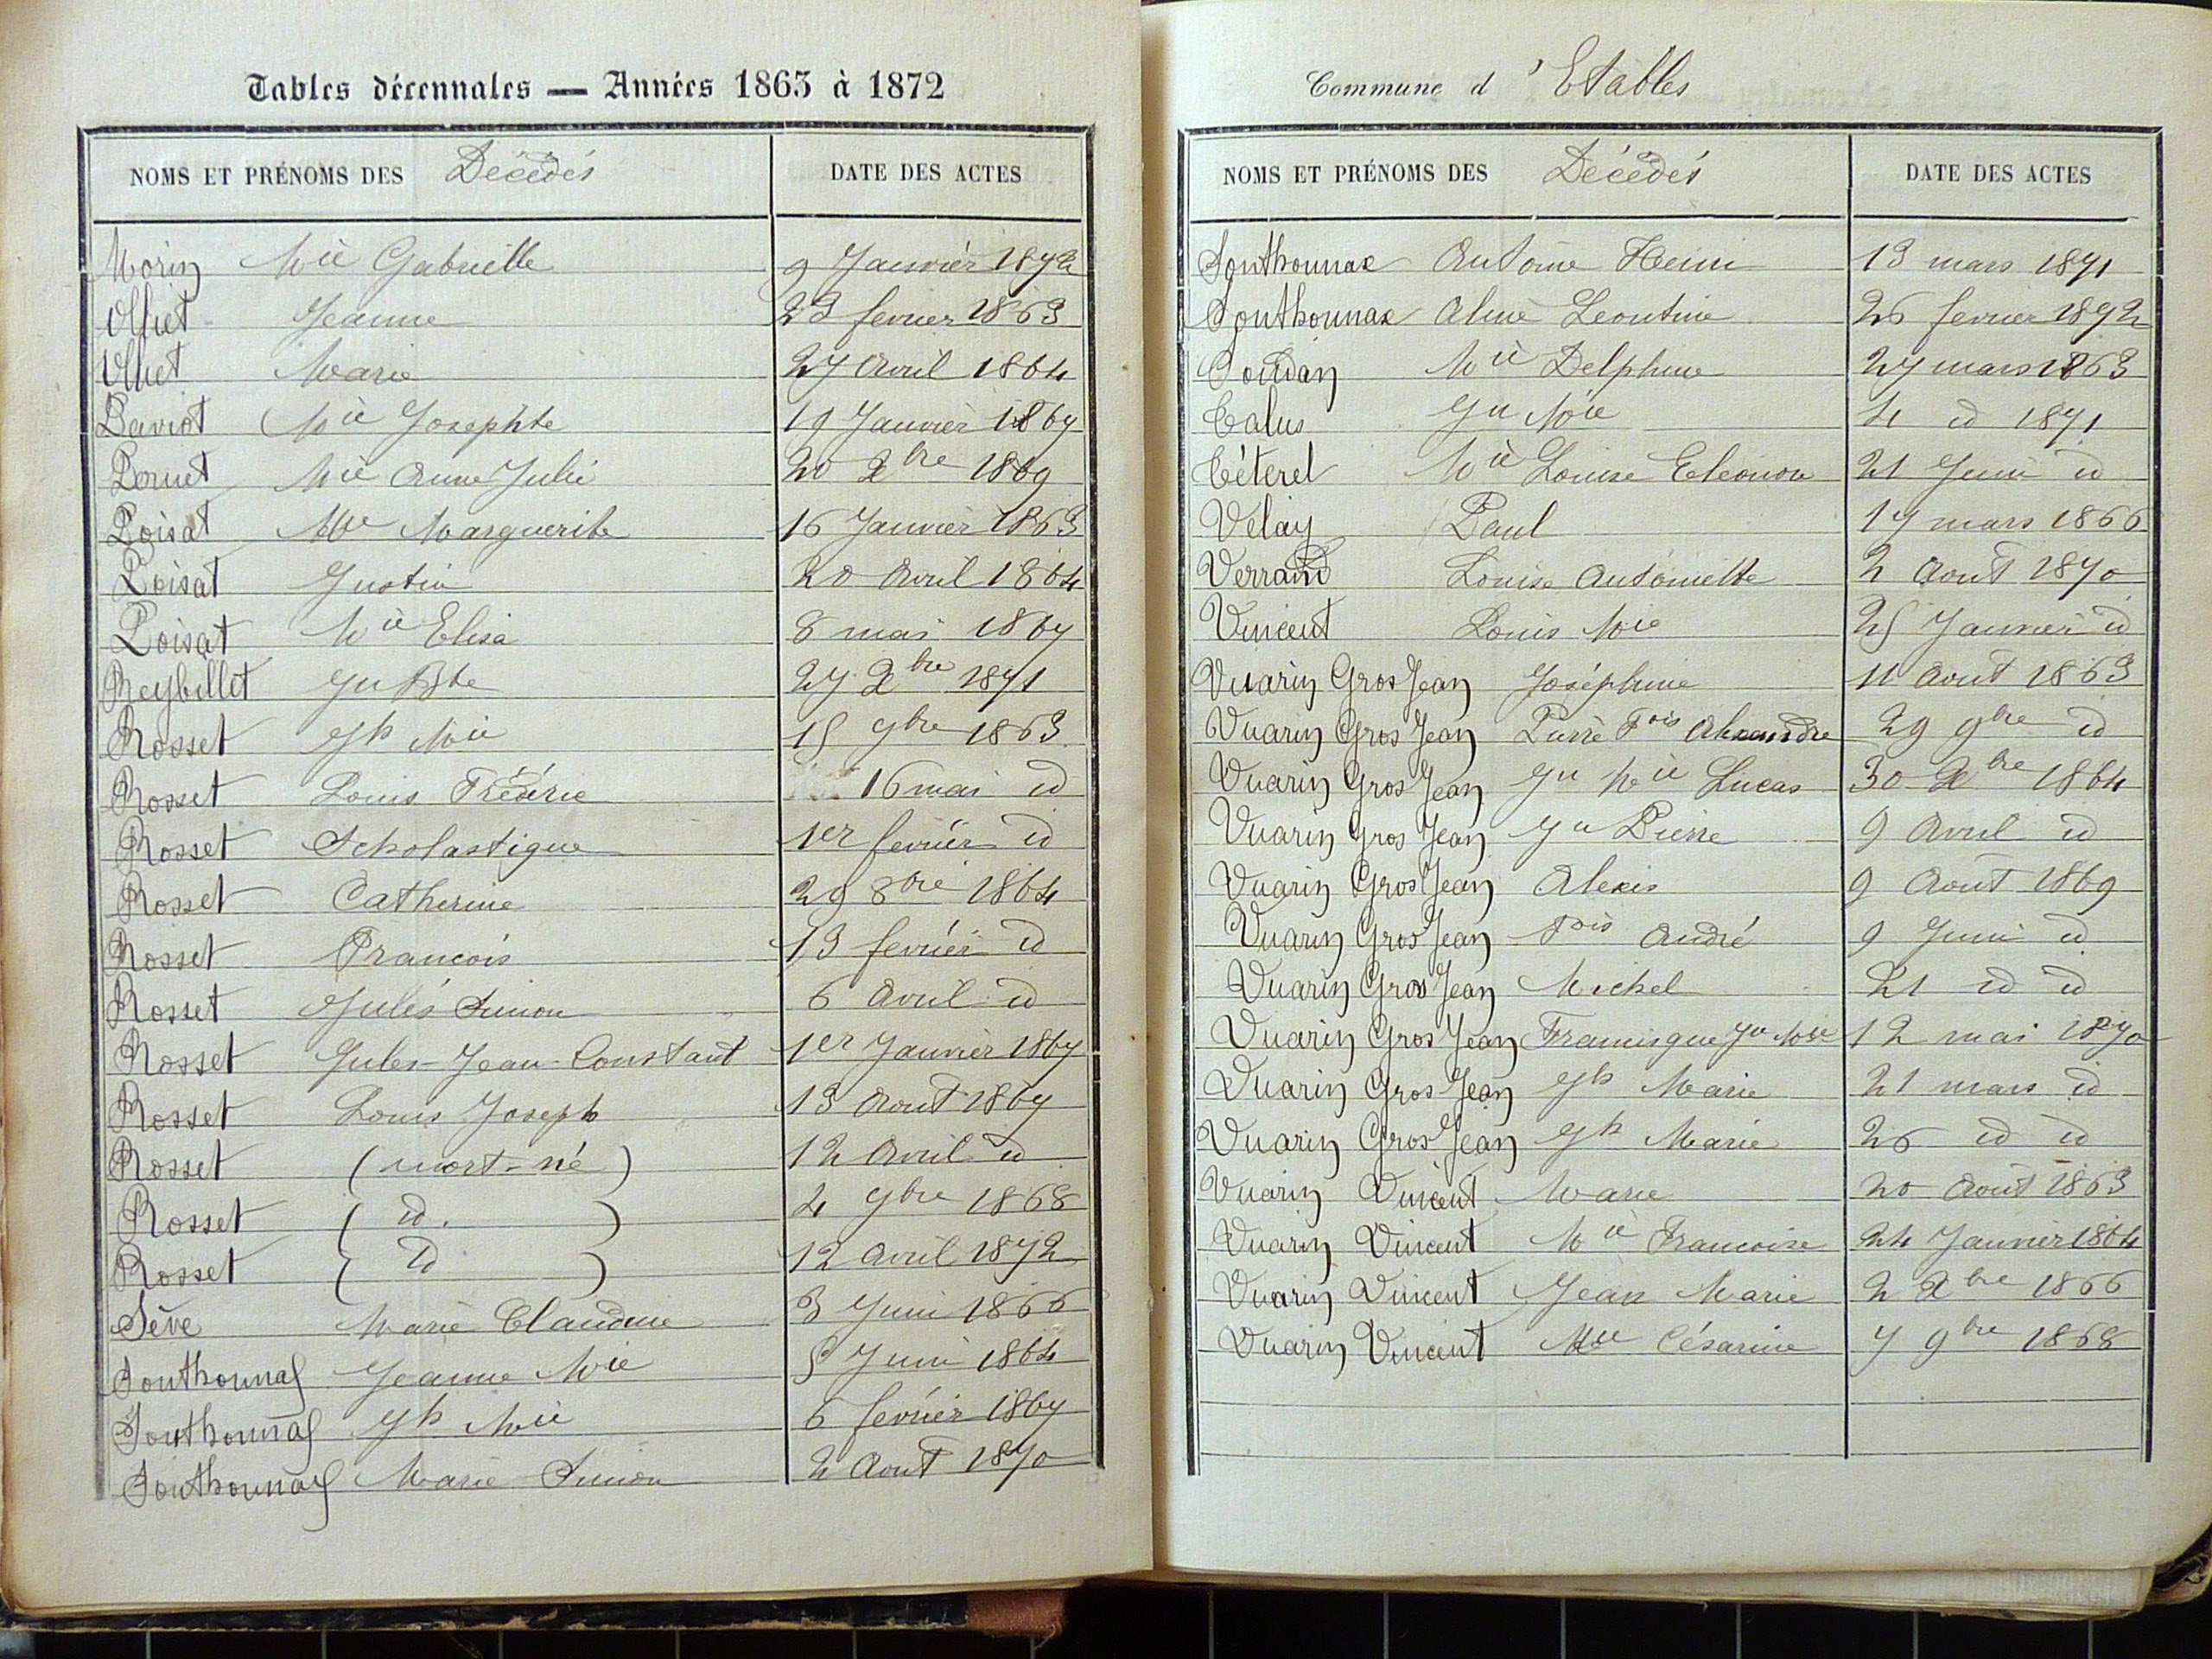 Tables décennales — Années 1863 à 1872
NOMS ET PRÉNOMS DES Décédés DATE DES ACTES
Morin Mie Gabrielle 9 Janvier 1872
Olliet Jeanne 23 fevrier 1863
Olliet Marie 27 Avril 1864
Paviot Mie Josephte 19 Janvier 1867
Pernet Mie Anne Julie 20 Xbre 1869
Poisat Mie Marguerite 16 Janvier 1863
Poisat Justin 20 Avril 1864
Poisat Mie Elisa 8 mai 1867
Reybillet Jn Bte 27 Xbre 1871
Rosset Jph Mie 15 9bre 1863
Rosset Louis Fréderic 16 mai id
Rosset Scholastique 1er fevrier id
Rosset Catherine 29 8bre 1864
Rosset Francois 13 fevrier id
Rosset Jules Simon 6 Avril id
Rosset Jules-Jean-Constant 1er Janvier 1867
Rosset Louis Joseph 13 Aout 1867
Rosset (mort-né) 12 Avril id
Rosset ( id. ) 4 9bre 1868
Rosset ( id ) 12 Avril 1872
Sève Marie Claudine 3 Juin 1866
Sonthonnax Jeanne Mie 5 Juin 1864
Sonthonnax Jph Mie 6 fevrier 1867
Sonthonnax Marie Simon 2 Aout 1870
Commune d'Etables
NOMS ET PRÉNOMS DES Décédés DATE DES ACTES
Sonthonnax Antoine Henri 13 mars 1871
Sonthonnax Aline Leontine 26 fevrier 1872
Sourdan Mie Delphine 27 mars 1863
Talus Jn Mie 4 id 1871
Téterel Mie Louise Eleonore 21 Juin id
Velay Paul 17 mars 1866
Verrand Louise Antoinette 2 Aout 1870
Vincent Louis Mie 25 Janvier id
Vuarin Gros Jean Joséphine 11 Aout 1863
Vuarin Gros Jean Pierre Fois Alexandre 29 9bre id
Vuarin Gros Jean Jn Mie Lucas 30 Xbre 1864
Vuarin Gros Jean Jn Pierre 9 Avril id
Vuarin Gros Jean Alexis 9 Aout 1869
Vuarin Gros Jean Fois André 9 Juin id
Vuarin Gros Jean Michel 21 id id
Vuarin Gros Jean Francisque Jn Mie 12 mai 1870
Vuarin Gros Jean Jph Marie 21 mars id
Vuarin Gros Jean Jph Marie 26 id id
Vuarin Vincent Marie 20 Aout 1863
Vuarin Vincent Mie Francoise 24 Janvier 1864
Vuarin Vincent Jean Marie 2 Xbre 1866
Vuarin Vincent Mie Césarine 7 9bre 1868